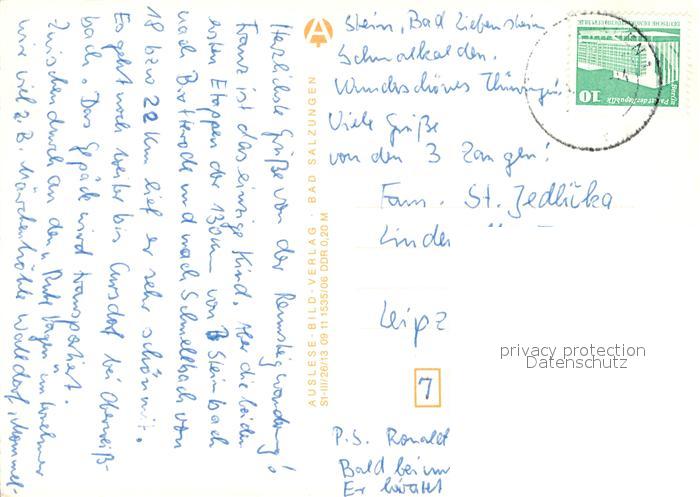 Herzlichste Grüße von der Rennsteigwanderung!
Franz ist das einzige Kind, der die beiden
ersten Etappen der 130 km von Steinbach
nach Brotterode und nach Schnellbach von
18 bzw 22 km lief er sehr schön mit.
Es geht noch weiter bis Cursdorf bei Oberweiß-
bach. Das Gepäck wird transportiert.
Zwischendurch an den "Ruhetagen" unternehmen
wir viel z. B. Märchenhöhle Walldorf, Mommel-
stein, Bad Liebenstein
Schmalkalden.
Wunderschönes Thüringen!
Viele Grüße
von den 3 Zangen!
AUSLESE-BILD-VERLAG · BAD SALZUNGEN
S1-III/26/13 09 11 1535/06 DDR 0,20 M
DEUTSCHE DEMOKRATISCHE REPUBLIK
Berlin
Palast der Republik
10
Fam. St. Jedlička
Linden
Leipz
7
privacy protection
Datenschutz
P.S. Ronald
Bald beim
Er heiratet